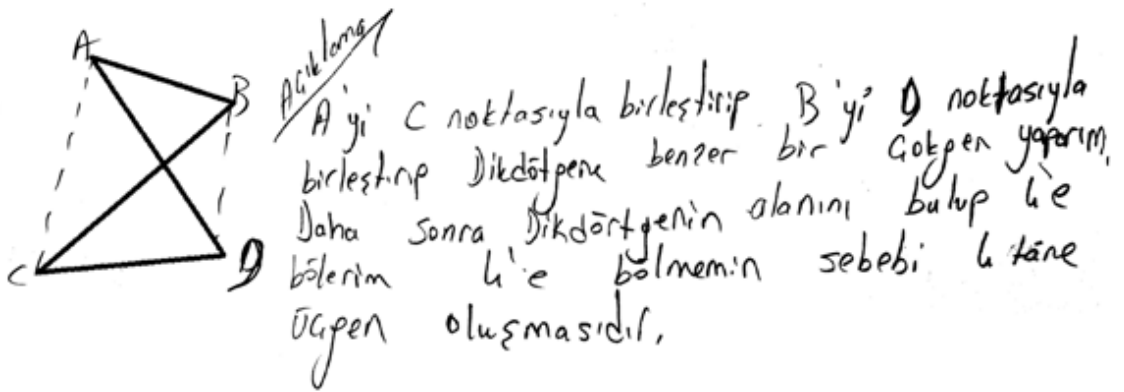 A
B
C
D
Açıklama
A'yi C noktasıyla birleştirip B'yi D noktasıyla
birleştirip Dikdötgene benzer bir Çokgen yaparım.
Daha sonra Dikdörtgenin alanını bulup 4'e
bölerim 4'e bölmemin sebebi 4 tane
üçgen oluşmasıdır.